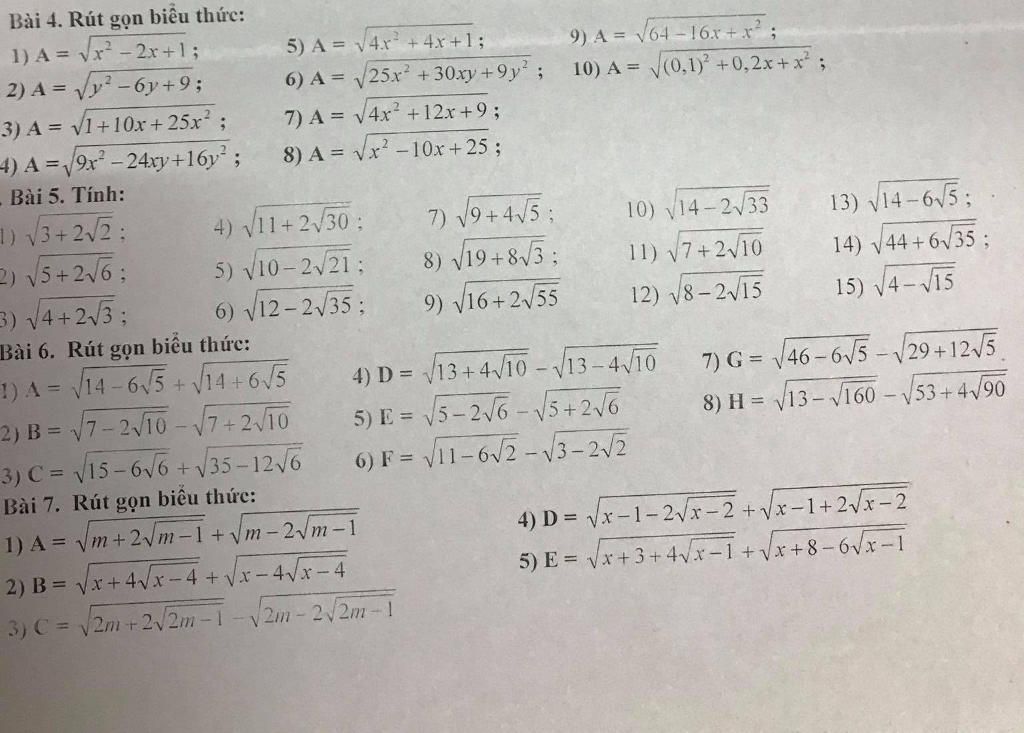 Bài 4. Rút gọn biểu thức:
1) A = √(x² − 2x + 1) ; 5) A = √(4x² + 4x + 1) ; 9) A = √(64 − 16x + x²) ;
2) A = √(y² − 6y + 9) ; 6) A = √(25x² + 30xy + 9y²) ; 10) A = √((0,1)² + 0,2x + x²) ;
3) A = √(1 + 10x + 25x²) ; 7) A = √(4x² + 12x + 9) ;
4) A = √(9x² − 24xy + 16y²) ; 8) A = √(x² − 10x + 25) ;
Bài 5. Tính:
1) √(3 + 2√2) ; 4) √(11 + 2√30) ; 7) √(9 + 4√5) ; 10) √(14 − 2√33) 13) √(14 − 6√5) ;
2) √(5 + 2√6) ; 5) √(10 − 2√21) ; 8) √(19 + 8√3) ; 11) √(7 + 2√10) 14) √(44 + 6√35) ;
3) √(4 + 2√3) ; 6) √(12 − 2√35) ; 9) √(16 + 2√55) 12) √(8 − 2√15) 15) √(4 − √15)
Bài 6. Rút gọn biểu thức:
1) A = √(14 − 6√5) + √(14 + 6√5) 4) D = √(13 + 4√10) − √(13 − 4√10) 7) G = √(46 − 6√5) − √(29 + 12√5)
2) B = √(7 − 2√10) − √(7 + 2√10) 5) E = √(5 − 2√6) − √(5 + 2√6) 8) H = √(13 − √160) − √(53 + 4√90)
3) C = √(15 − 6√6) + √(35 − 12√6) 6) F = √(11 − 6√2) − √(3 − 2√2)
Bài 7. Rút gọn biểu thức:
1) A = √(m + 2√(m − 1)) + √(m − 2√(m − 1)) 4) D = √(x − 1 − 2√(x − 2)) + √(x − 1 + 2√(x − 2))
2) B = √(x + 4√(x − 4)) + √(x − 4√(x − 4)) 5) E = √(x + 3 + 4√(x − 1)) + √(x + 8 − 6√(x − 1))
3) C = √(2m + 2√(2m − 1)) − √(2m − 2√(2m − 1))